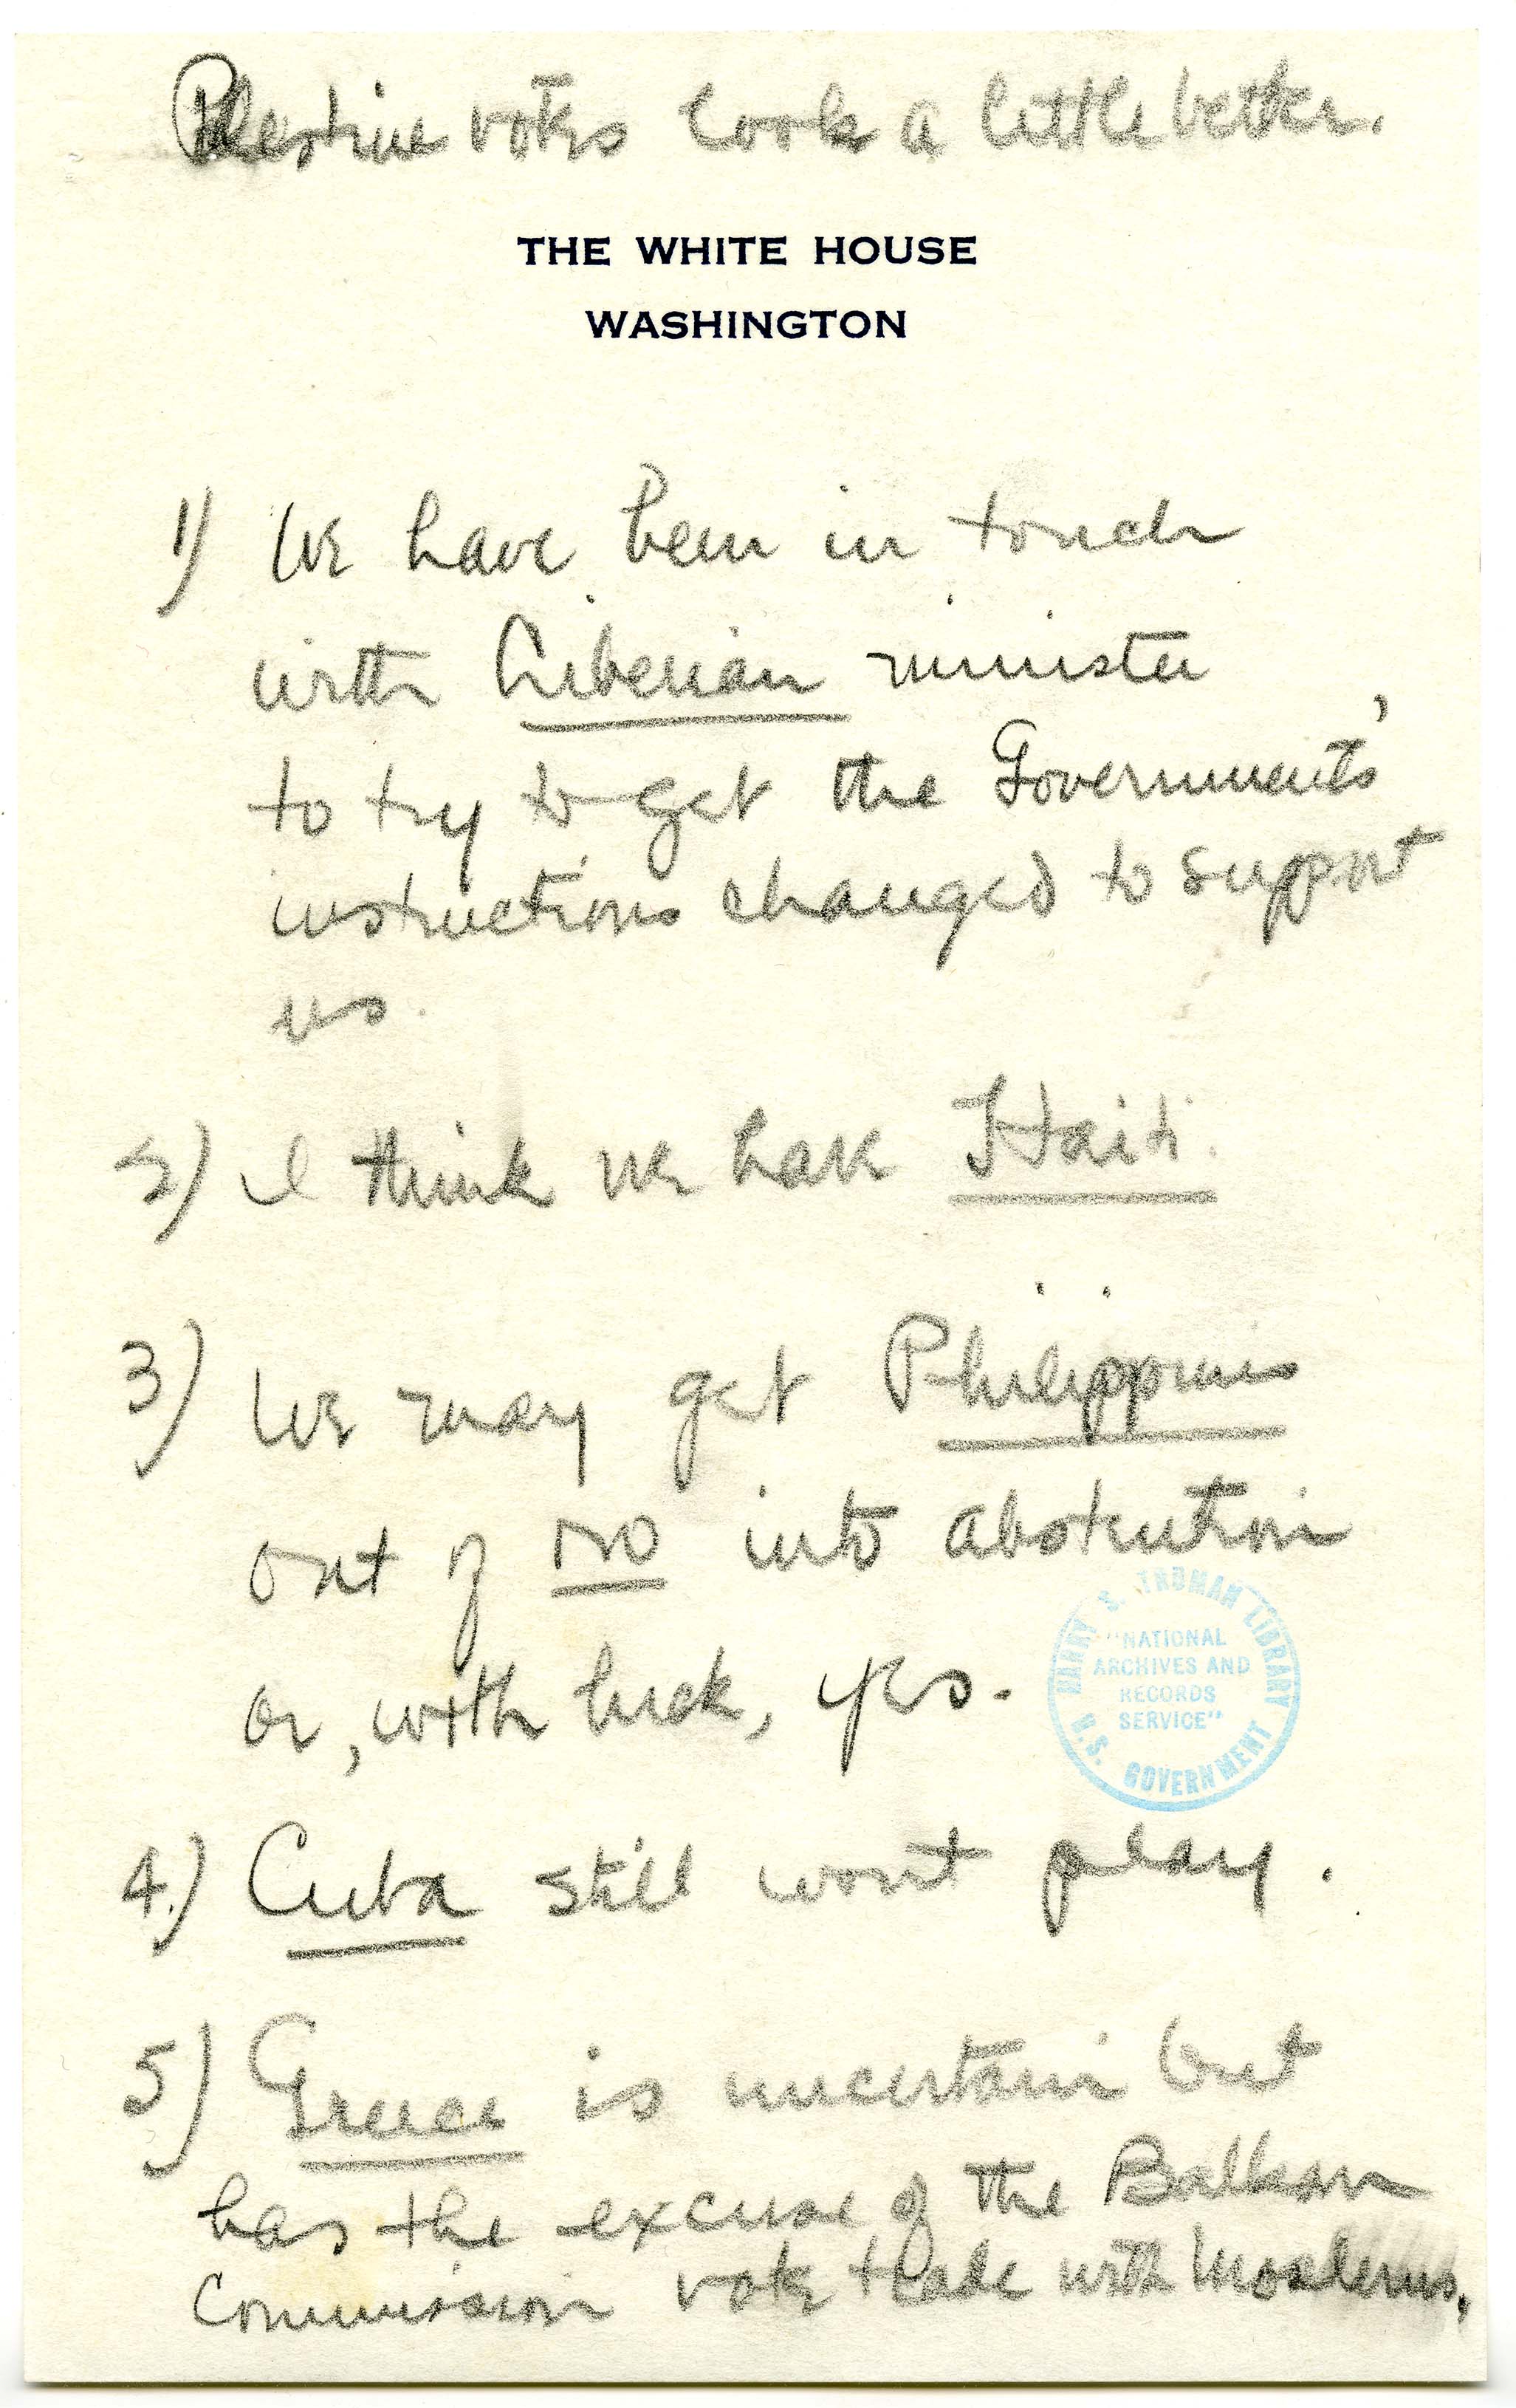 Palestine votes look a little better.
THE WHITE HOUSE
WASHINGTON
1) We have been in touch
with Liberian minister
to try to get the Governments'
instructions changed to support
us.
2) I think we have Haiti.
3) We may get Philippines
out of NO into abstention
or, with luck, yes.
HARRY S. TRUMAN LIBRARY
"NATIONAL
ARCHIVES AND
RECORDS
SERVICE"
U.S. GOVERNMENT
4.) Cuba still wont play.
5) Greece is uncertain but
has the excuse of the Balkan
Commission vote trade with Moslems.